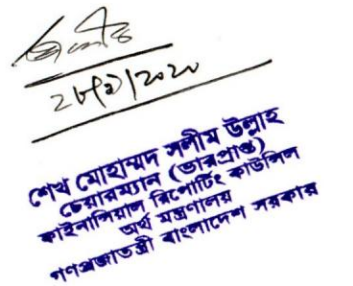 শেখ মোহাম্মদ সলীম উল্লাহ
চেয়ারম্যান (ভারপ্রাপ্ত)
ফাইনান্সিয়াল রিপোর্টিং কাউন্সিল
অর্থ মন্ত্রণালয়
গণপ্রজাতন্ত্রী বাংলাদেশ সরকার